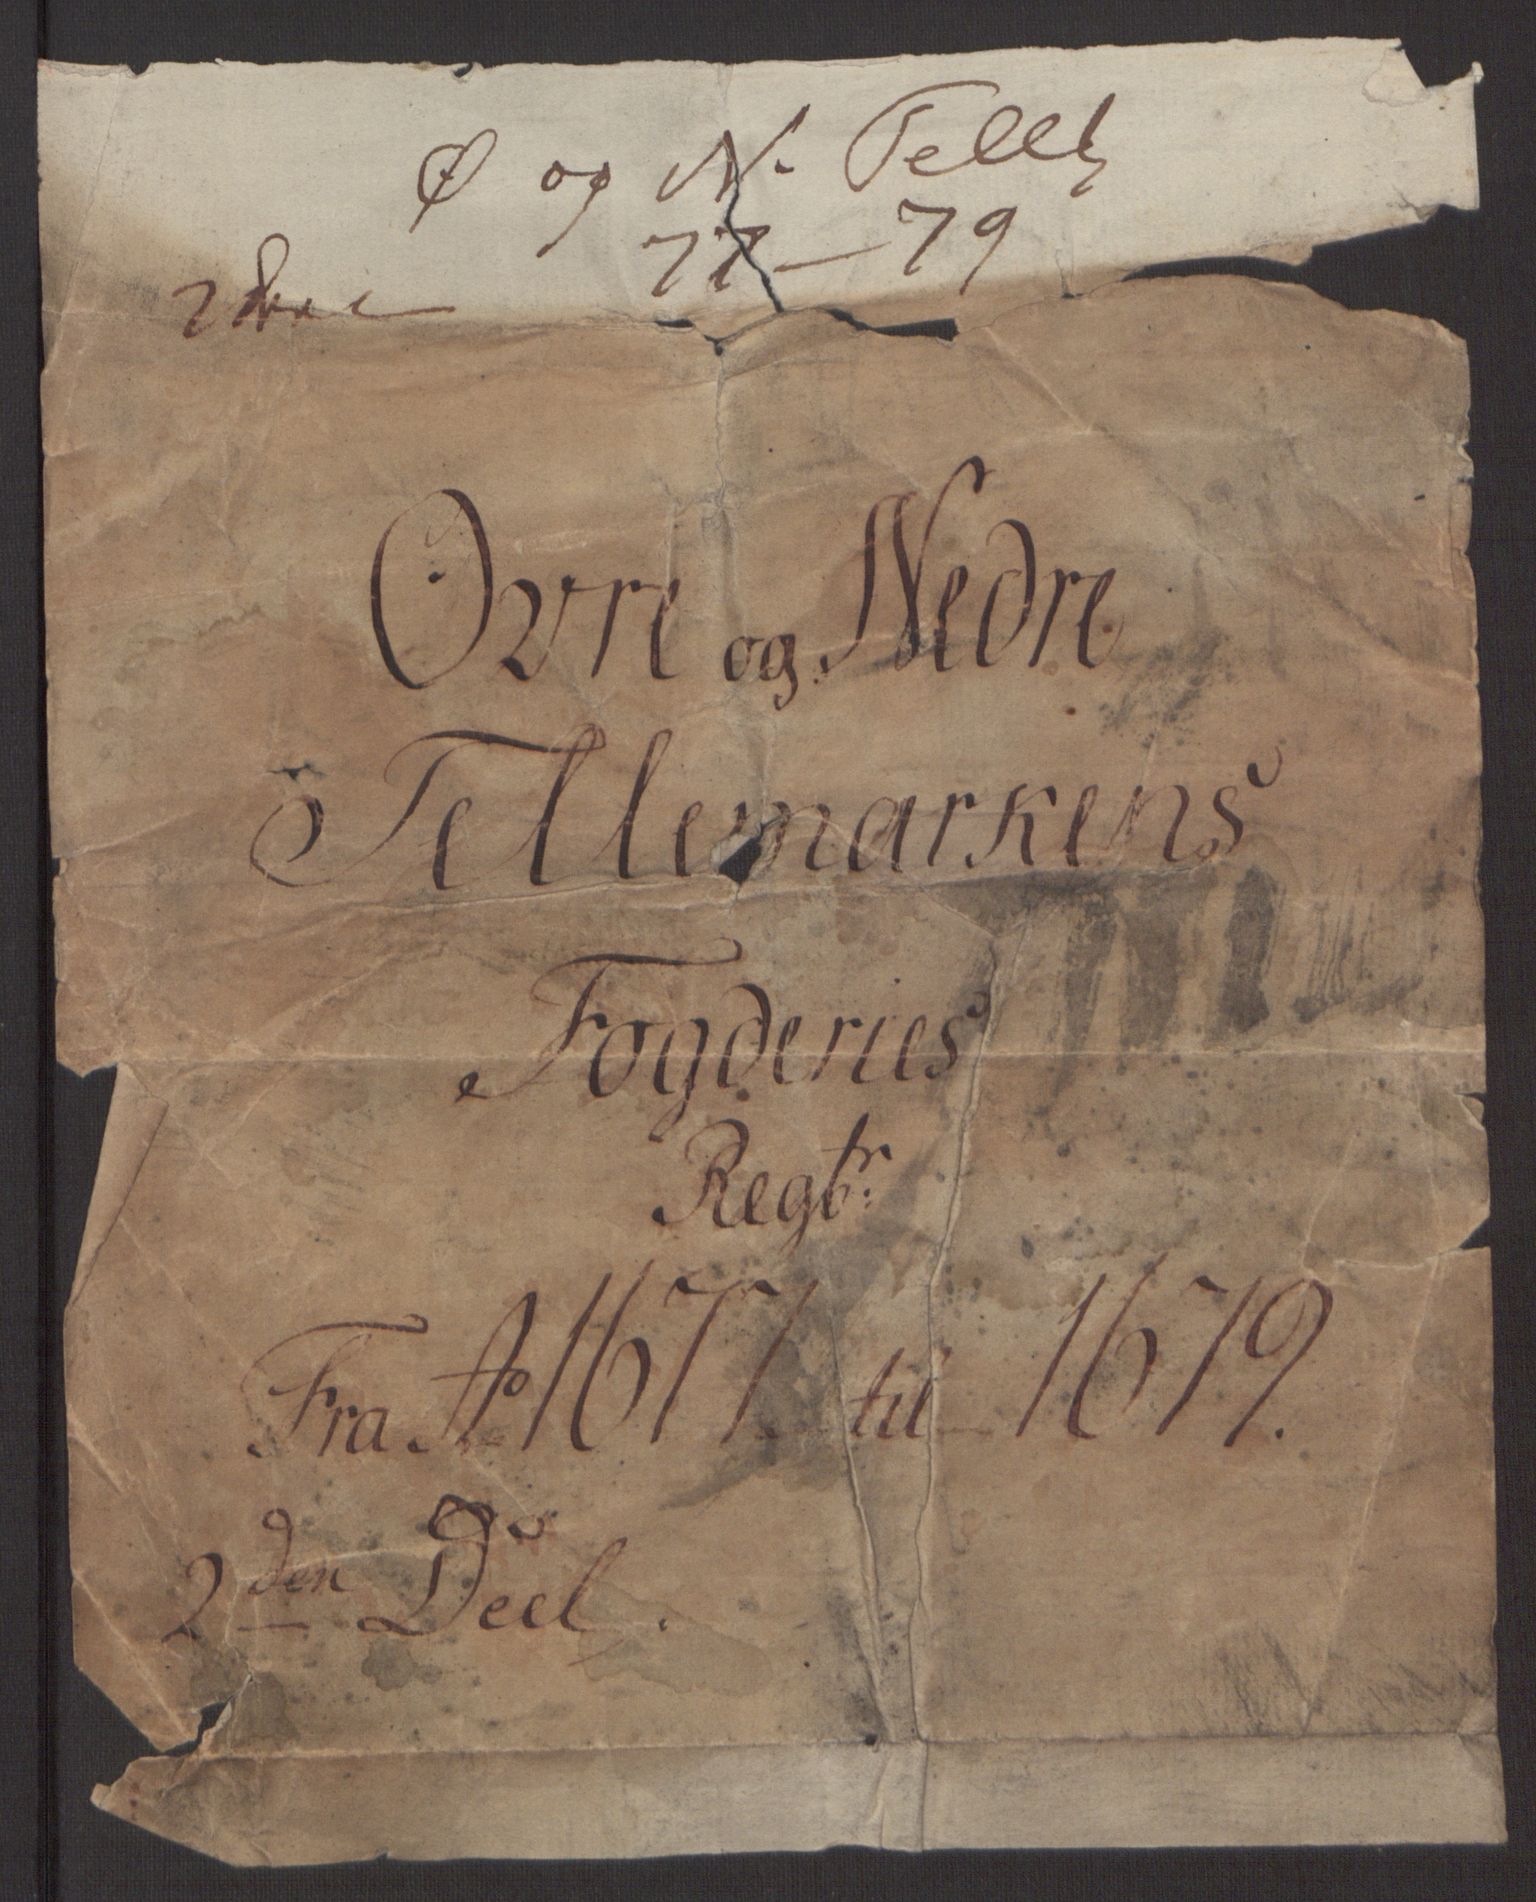 Ø og N. Tellk
77 — 79
2
Øvre og Nedre
Tellemarkens
Fogderies
Regbr:
Fra Ao 1677. til 1679.
2den Deel.